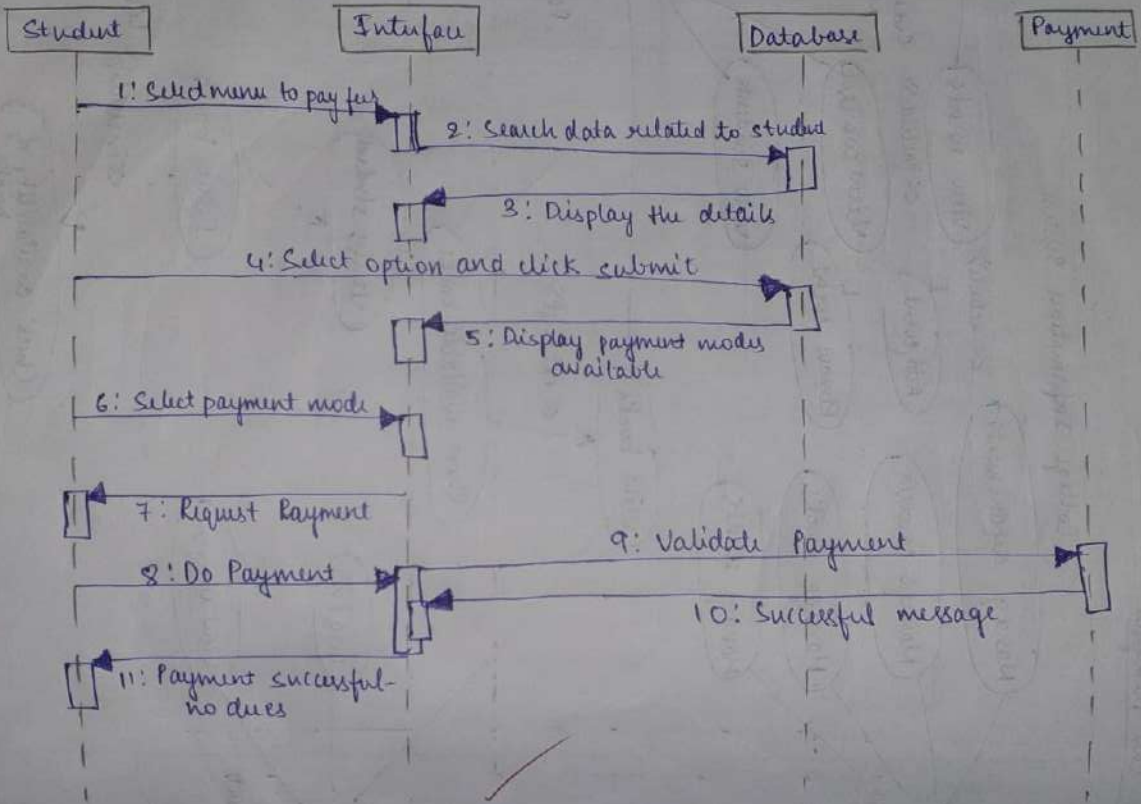 Student
Interface
Database
Payment
1: Select menu to pay fees
2: Search data related to student
3: Display the details
4: Select option and click submit
5: Display payment modes
available
6: Select payment mode
7: Request Payment
8: Do Payment
9: Validate Payment
10: Successful message
11: Payment successful-
no dues